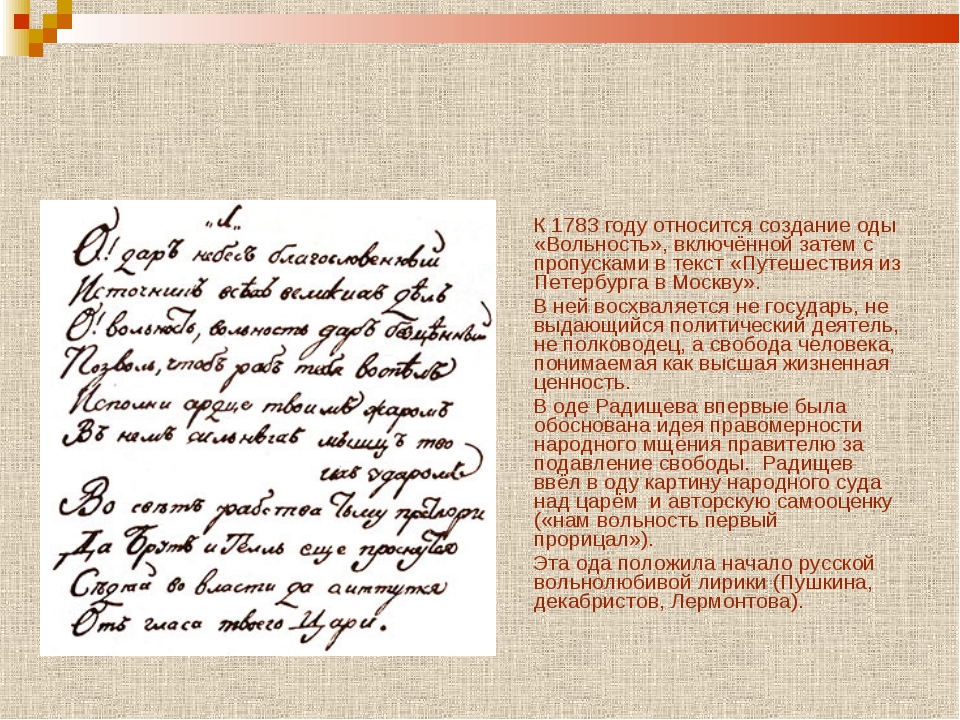 „1„
О! даръ небесъ благословенный
Источникъ всѣхъ великихъ дѣлъ
О! вольность, вольность даръ безцѣнный
Позволь, чтобъ рабъ тебя воспѣлъ
Исполни сердце твоимъ жаромъ
Въ немъ сильныхъ мышцъ тво
ихъ ударомъ
Во свѣтъ рабства тьму претвори
Да Брутъ и Телль еще проснутся
Сѣдяй во власти да смятутся
Отъ гласа твоего Цари.
К 1783 году относится создание оды
«Вольность», включённой затем с
пропусками в текст «Путешествия из
Петербурга в Москву».
В ней восхваляется не государь, не
выдающийся политический деятель,
не полководец, а свобода человека,
понимаемая как высшая жизненная
ценность.
В оде Радищева впервые была
обоснована идея правомерности
народного мщения правителю за
подавление свободы. Радищев
ввёл в оду картину народного суда
над царём и авторскую самооценку
(«нам вольность первый
прорицал»).
Эта ода положила начало русской
вольнолюбивой лирики (Пушкина,
декабристов, Лермонтова).